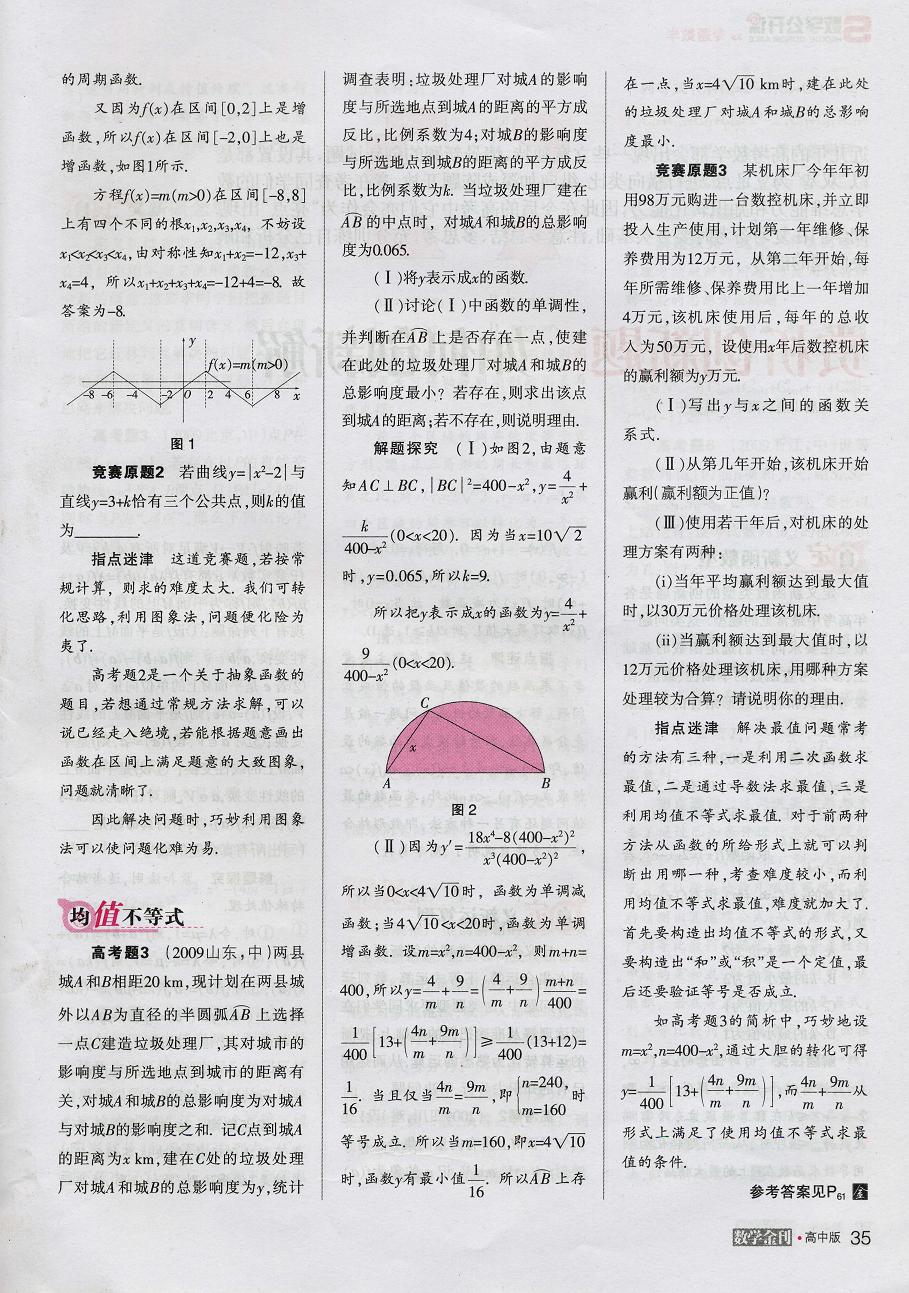 的周期函数.
又因为f(x)在区间[0,2]上是增
函数,所以f(x)在区间[-2,0]上也是
增函数,如图1所示.
方程f(x)=m(m>0)在区间[-8,8]
上有四个不同的根x₁,x₂,x₃,x₄, 不妨设
x₁<x₂<x₃<x₄,由对称性知x₁+x₂=-12,x₃+
x₄=4, 所以x₁+x₂+x₃+x₄=-12+4=-8. 故
答案为-8.
y
f(x)=m(m>0)
-8 -6 -4 -2 O 2 4 6 8 x
图1
竞赛原题2 若曲线y=|x²-2|与
直线y=3+k恰有三个公共点,则k的值
为______.
指点迷津 这道竞赛题,若按常
规计算, 则求的难度太大. 我们可转
化思路,利用图象法,问题便化险为
夷了.
高考题2是一个关于抽象函数的
题目,若想通过常规方法求解,可以
说已经走入绝境,若能根据题意画出
函数在区间上满足题意的大致图象,
问题就清晰了.
因此解决问题时,巧妙利用图象
法可以使问题化难为易.
均值不等式
高考题3 (2009山东,中)两县
城A和B相距20 km,现计划在两县城
外以AB为直径的半圆弧AB上选择
一点C建造垃圾处理厂,其对城市的
影响度与所选地点到城市的距离有
关,对城A和城B的总影响度为对城A
与对城B的影响度之和. 记C点到城A
的距离为x km,建在C处的垃圾处理
厂对城A和城B的总影响度为y,统计
调查表明:垃圾处理厂对城A的影响
度与所选地点到城A的距离的平方成
反比,比例系数为4;对城B的影响度
与所选地点到城B的距离的平方成反
比,比例系数为k. 当垃圾处理厂建在
AB的中点时, 对城A和城B的总影响
度为0.065.
(Ⅰ)将y表示成x的函数.
(Ⅱ)讨论(Ⅰ)中函数的单调性,
并判断在AB上是否存在一点,使建
在此处的垃圾处理厂对城A和城B的
总影响度最小? 若存在,则求出该点
到城A的距离;若不存在,则说明理由.
解题探究 (Ⅰ)如图2,由题意
知AC⊥BC,|BC|²=400-x²,y=4/x²+
k/(400-x²)(0<x<20). 因为当x=10√2
时,y=0.065,所以k=9.
所以把y表示成x的函数为y=4/x²+
9/(400-x²)(0<x<20).
C
x
A B
图2
(Ⅱ)因为y′=(18x⁴-8(400-x²)²)/(x³(400-x²)²),
所以当0<x<4√10时, 函数为单调减
函数;当4√10<x<20时,函数为单调
增函数. 设m=x²,n=400-x², 则m+n=
400,所以y=4/m+9/n=(4/m+9/n)(m+n)/400=
1/400[13+(4n/m+9m/n)]≥1/400(13+12)=
1/16. 当且仅当4n/m=9m/n,即{n=240, m=160时
等号成立. 所以当m=160,即x=4√10
时,函数y有最小值1/16. 所以AB上存
在一点,当x=4√10 km时,建在此处
的垃圾处理厂对城A和城B的总影响
度最小.
竞赛原题3 某机床厂今年年初
用98万元购进一台数控机床,并立即
投入生产使用,计划第一年维修、保
养费用为12万元, 从第二年开始,每
年所需维修、保养费用比上一年增加
4万元,该机床使用后,每年的总收
入为50万元, 设使用x年后数控机床
的赢利额为y万元.
(Ⅰ)写出y与x之间的函数关
系式.
(Ⅱ)从第几年开始,该机床开始
赢利(赢利额为正值)?
(Ⅲ)使用若干年后,对机床的处
理方案有两种:
(i)当年平均赢利额达到最大值
时,以30万元价格处理该机床.
(ii)当赢利额达到最大值时,以
12万元价格处理该机床,用哪种方案
处理较为合算? 请说明你的理由.
指点迷津 解决最值问题常考
的方法有三种,一是利用二次函数求
最值,二是通过导数法求最值,三是
利用均值不等式求最值. 对于前两种
方法从函数的所给形式上就可以判
断出用哪一种,考查难度较小,而利
用均值不等式求最值,难度就加大了.
首先要构造出均值不等式的形式,又
要构造出“和”或“积”是一个定值,最
后还要验证等号是否成立.
如高考题3的简析中,巧妙地设
m=x²,n=400-x²,通过大胆的转化可得
y=1/400[13+(4n/m+9m/n)],而4n/m+9m/n从
形式上满足了使用均值不等式求最
值的条件.
参考答案见P₆₁ 金
数学金刊·高中版 35